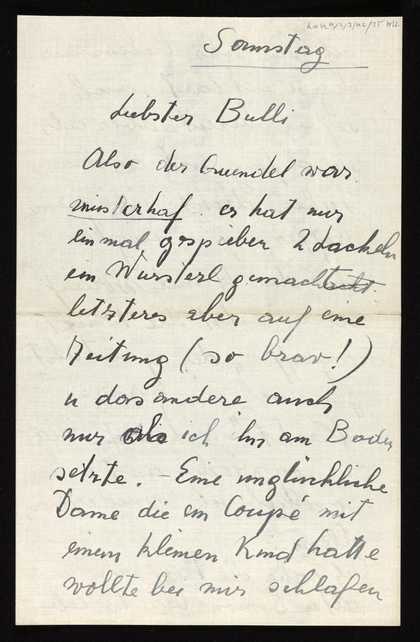 Samstag
Liebster Bulli
Also der Gundel war
musterhaf. er hat nur
einmal gespieben 2 Lackeln
ein Wursterl gemacht
letzteres aber auf eine
Zeitung (so brav!)
u das andere auch
nur als ich ihn am Boden
setzte. – Eine unglückliche
Dame die ein Coupé mit
einem kleinen Kind hatte
wollte bei mir schlafen